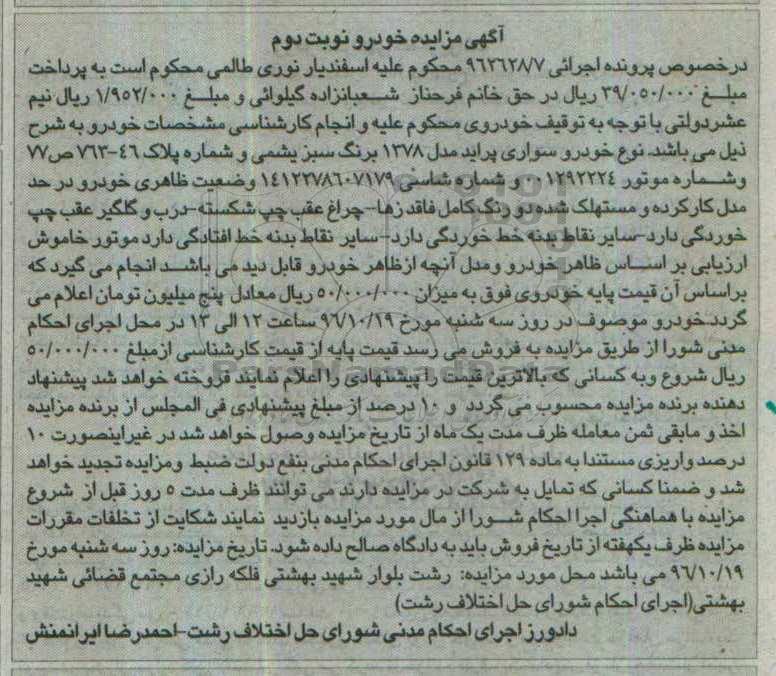 آگهی مزایده خودرو نوبت دوم
درخصوص پرونده اجرائی ۹۶۲۶۲۸/۷ محکوم علیه اسفندیار نوری طالمی محکوم است به پرداخت
مبلغ ۳۹/۰۵۰/۰۰۰ ریال در حق خانم فرحناز شعبانزاده گیلوائی و مبلغ ۱/۹۵۲/۰۰۰ ریال نیم
عشردولتی با توجه به توقیف خودروی محکوم علیه و انجام کارشناسی مشخصات خودرو به شرح
ذیل می باشد. نوع خودرو سواری پراید مدل ۱۳۷۸ برنگ سبز یشمی و شماره پلاک ۴۶-۷۶۳ ص۷۷
وشماره موتور ۰۱۲۹۲۲۲۴ و شماره شاسی ۱۴۱۲۲۷۸۶۰۷۱۷۹ وضعیت ظاهری خودرو در حد
مدل کارکرده و مستهلک شده دورنگ کامل فاقد زها-چراغ عقب چپ شکسته-درب و گلگیر عقب چپ
خوردگی دارد-سایر نقاط بدنه خط خوردگی دارد-سایر نقاط بدنه خط افتادگی دارد موتور خاموش
ارزیابی بر اساس ظاهر خودرو ومدل آنچه ازظاهر خودرو قابل دید می باشد انجام می گیرد که
براساس آن قیمت پایه خودروی فوق به میزان ۵۰/۰۰۰/۰۰۰ ریال معادل پنج میلیون تومان اعلام می
گردد.خودرو موصوف در روز سه شنبه مورخ ۹۶/۱۰/۱۹ ساعت ۱۲ الی ۱۳ در محل اجرای احکام
مدنی شورا از طریق مزایده به فروش می رسد قیمت پایه از قیمت کارشناسی ازمبلغ ۵۰/۰۰۰/۰۰۰
ریال شروع وبه کسانی که بالاترین قیمت را پیشنهادی را اعلام نمایند فروخته خواهد شد پیشنهاد
دهنده برنده مزایده محسوب می گردد و ۱۰ درصد از مبلغ پیشنهادی فی المجلس از برنده مزایده
اخذ و مابقی ثمن معامله ظرف مدت یک ماه از تاریخ مزایده وصول خواهد شد در غیراینصورت ۱۰
درصد واریزی مستندا به ماده ۱۲۹ قانون اجرای احکام مدنی بنفع دولت ضبط ومزایده تجدید خواهد
شد و ضمنا کسانی که تمایل به شرکت در مزایده دارند می توانند ظرف مدت ۵ روز قبل از شروع
مزایده با هماهنگی اجرا احکام شورا از مال مورد مزایده بازدید نمایند شکایت از تخلفات مقررات
مزایده ظرف یکهفته از تاریخ فروش باید به دادگاه صالح داده شود. تاریخ مزایده: روز سه شنبه مورخ
۹۶/۱۰/۱۹ می باشد محل مورد مزایده: رشت بلوار شهید بهشتی فلکه رازی مجتمع قضائی شهید
بهشتی(اجرای احکام شورای حل اختلاف رشت)
دادورز اجرای احکام مدنی شورای حل اختلاف رشت-احمدرضا ایرانمنش